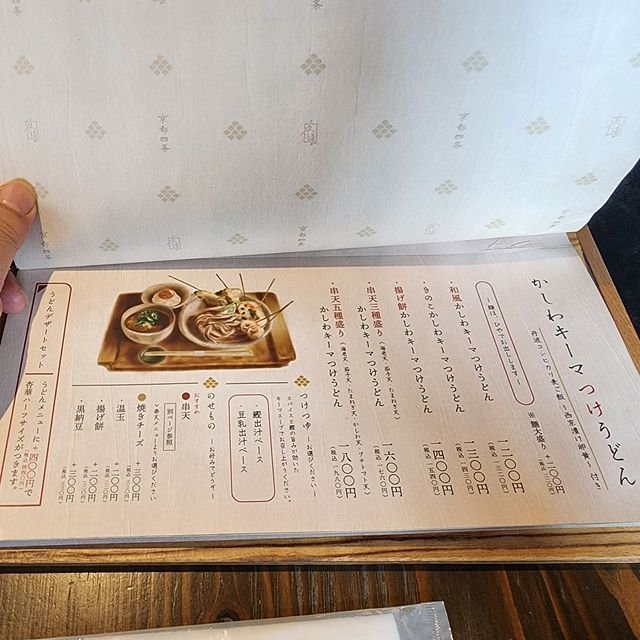 京都四条
かしわキーマつけうどん
丹波コシヒカリ麦ご飯 〜西京漬け卵黄〜 付き
※麺大盛り +二〇〇円
〜麺は、ひやでお出しします〜
・和風かしわキーマつけうどん 一二〇〇円
(税込 一三二〇円)
・きのこかしわキーマつけうどん 一三〇〇円
(税込 一四三〇円)
・揚げ餅かしわキーマつけうどん 一四〇〇円
(税込 一五四〇円)
・串天三種盛り (海老天・茄子天・たまねぎ天)
かしわキーマつけうどん 一六〇〇円
(税込 一七六〇円)
・串天五種盛り (海老天・茄子天・たまねぎ天・かしわ天・プチトマト天)
かしわキーマつけうどん 一八〇〇円
(税込 一九八〇円)
つけつゆ 〜お選びください〜
スパイスと鰹の旨みが効いた
キーマスープでお召し上がりください。
・鰹出汁ベース
・豆乳出汁ベース
のせもの 〜お好みでどうぞ〜
おすすめ
串天 別ページ参照
串天メニューよりお選びください
焼きチーズ +二〇〇円
(税込 二二〇円)
温玉
揚げ餅 +二〇〇円
(税込 二二〇円)
黒納豆
うどんデザートセット
うどんメニューに+四〇〇円で
(税込 四四〇円)
杏華ハーフサイズがつきます。